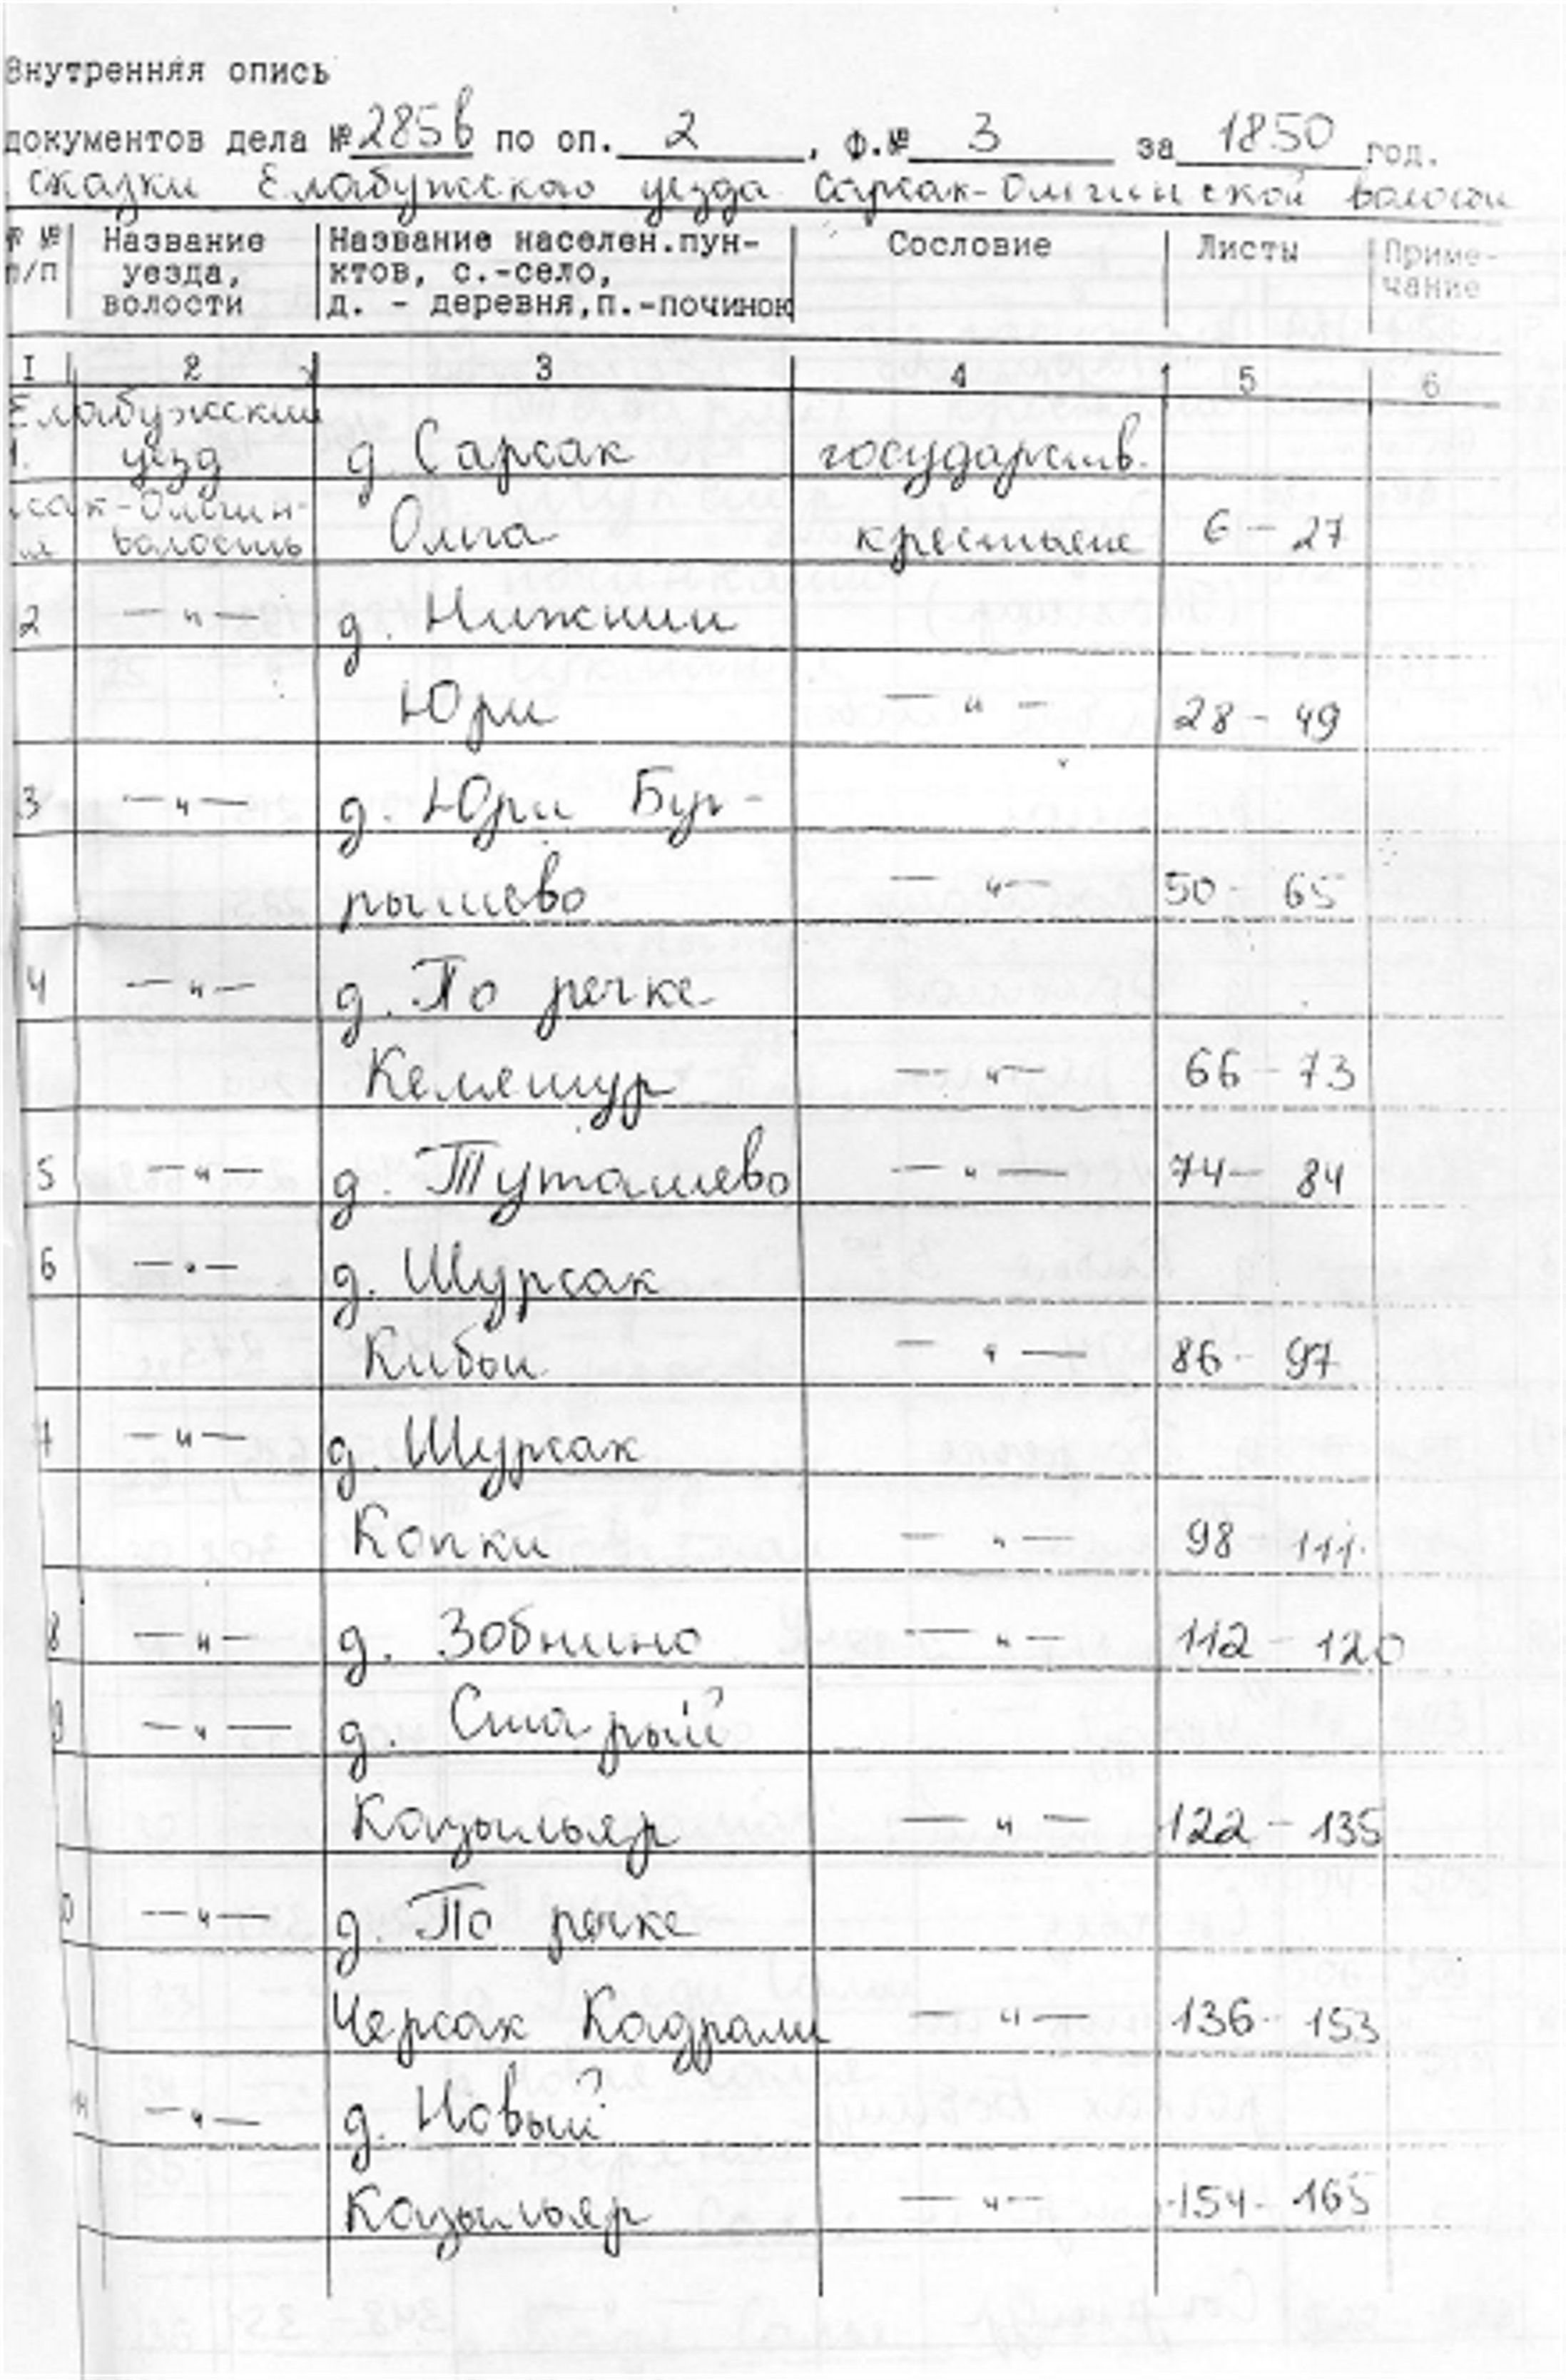 Внутренняя опись
документов дела № 285в по оп. 2, ф.№ 3 за 1850 год.
сказки Елабужского уезда Сарсак-Омгинской волости
№ № п/п | Название уезда, волости | Название населен.пунктов, с.-село, д. - деревня, п.-починок | Сословие | Листы | Примечание
I 2 3 4 5 6
Елабужский
1. уезд д. Сарсак государств.
сак-Омгин- Омга крестьяне 6 - 27
волость
2 —"— д. Нижнии
Юри —"— 28 - 49
3 —"— д. Юри Бур-
рышево —"— 50 - 65
4 —"— д. По речке
Келяшур —"— 66 - 73
5 —"— д. Туташево —"— 74 - 84
6 —"— д. Шурсак
Кибьи —"— 86 - 97
7 —"— д. Шурсак
Копки —"— 98 - 111
8 —"— д. Зобнино —"— 112 - 120
9 —"— д. Старый
Казыльяр —"— 122 - 135
0 —"— д. По речке
Черсак Кадрали —"— 136 - 153
11 —"— д. Новый
Казыльяр —"— 154 - 165